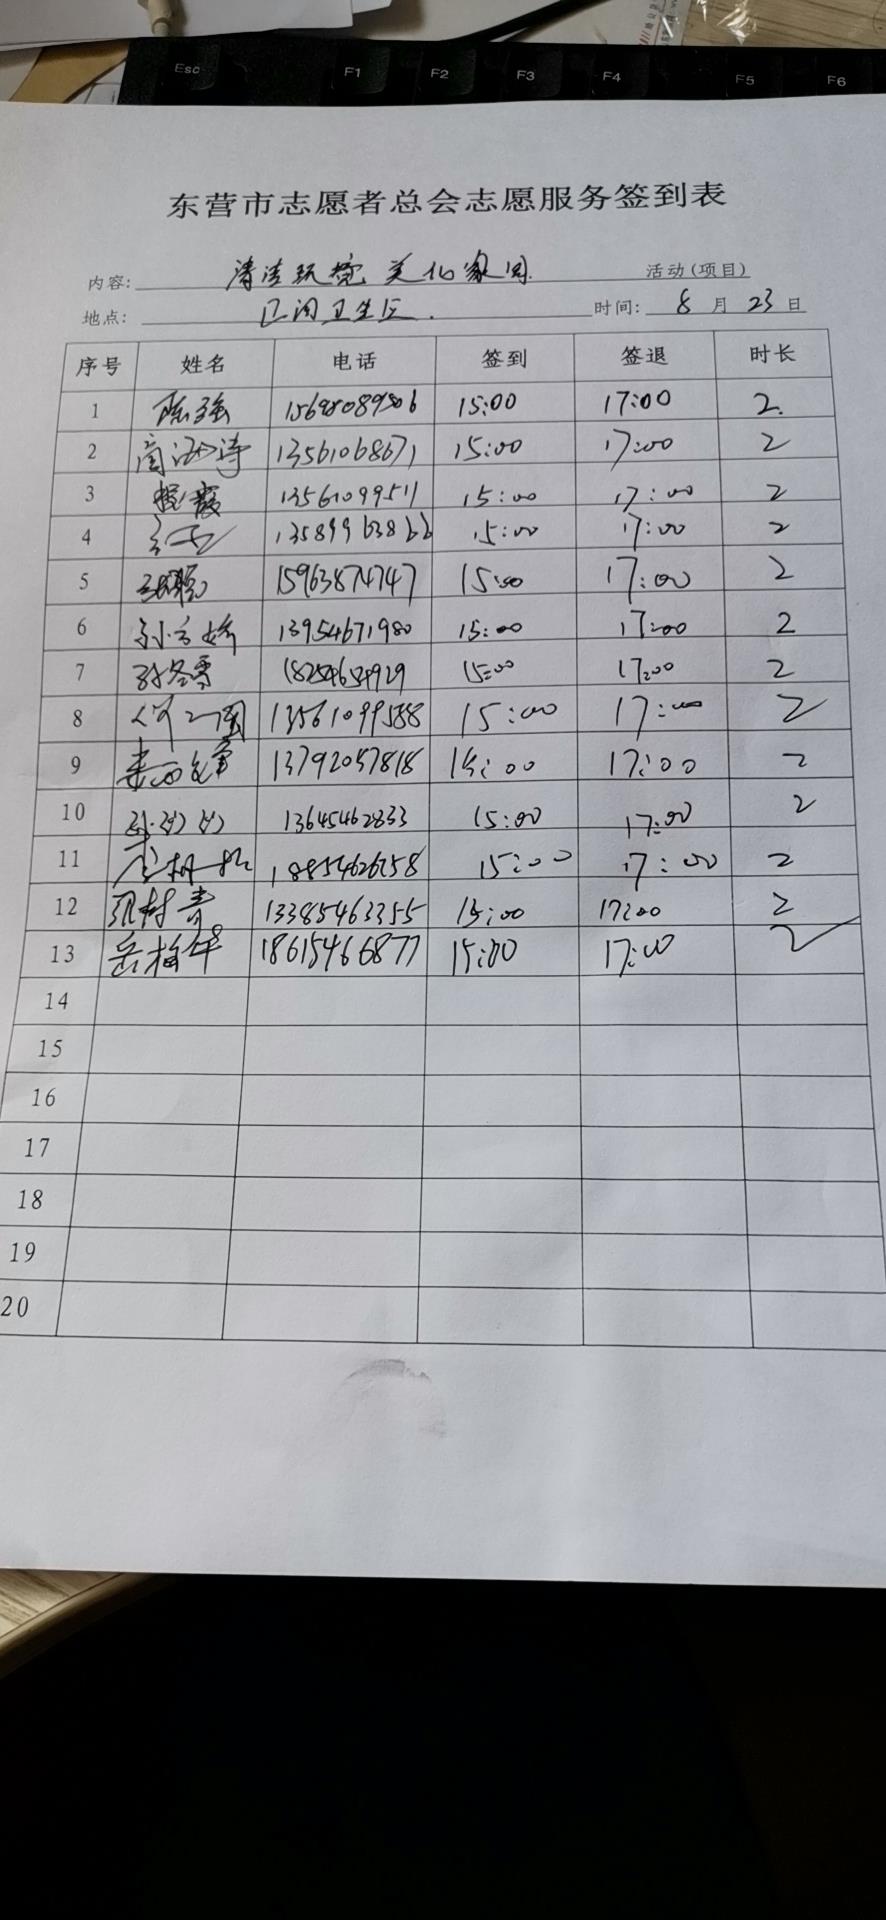 Esc F1 F2 F3 F4 F5 F6
东营市志愿者总会志愿服务签到表
内容: 清洁环境 美化家园 活动(项目)
地点: 卫生区. 时间: 8 月 23 日
序号 姓名 电话 签到 签退 时长
1 陈强 15698089506 15:00 17:00 2.
2 13561068671 15:00 17:00 2
3 程霞 13561099511 15:00 17:00 2
4 15:00 17:00 2
5 15963874747 15:00 17:00 2
6 13954671980 15:00 17:00 2
7 孙冬雪 15:00 17:00 2
8 13561099588 15:00 17:00 2
9 13792057818 15:00 17:00 2
10 13645462833 15:00 17:00 2
11 18854626758 15:00 17:00 2
12 13385463355 15:00 17:00 2
13 岳梅华 18615466877 15:00 17:00 2
14
15
16
17
18
19
20